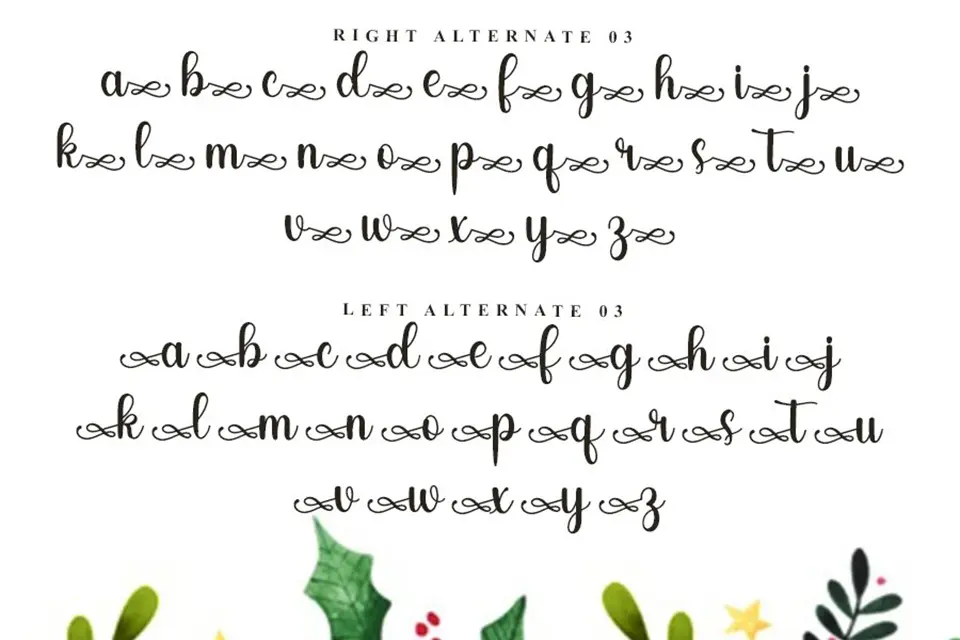 RIGHT ALTERNATE 03
a b c d e f g h i j
k l m n o p q r s t u
v w x y z
LEFT ALTERNATE 03
a b c d e f g h i j
k l m n o p q r s t u
v w x y z